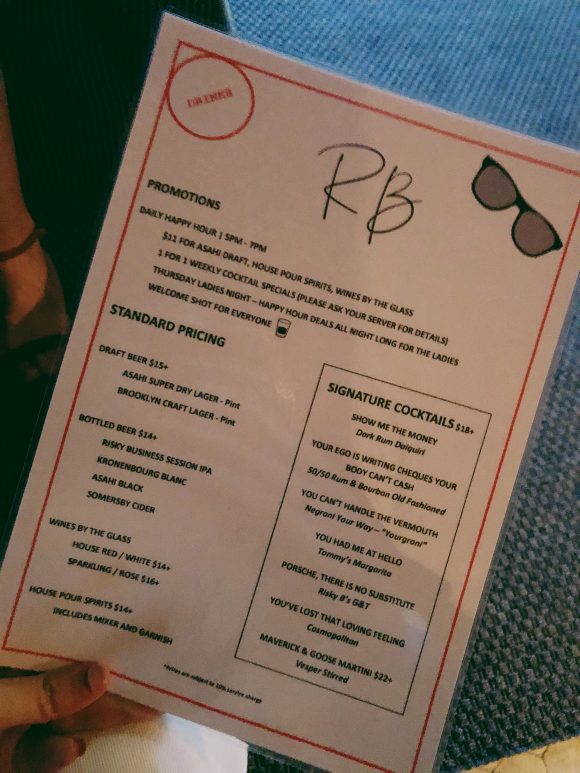 DRINKS
RB
PROMOTIONS
DAILY HAPPY HOUR | 5PM - 7PM
$11 FOR ASAHI DRAFT, HOUSE POUR SPIRITS, WINES BY THE GLASS
1 FOR 1 WEEKLY COCKTAIL SPECIALS (PLEASE ASK YOUR SERVER FOR DETAILS)
THURSDAY LADIES NIGHT – HAPPY HOUR DEALS ALL NIGHT LONG FOR THE LADIES
WELCOME SHOT FOR EVERYONE
STANDARD PRICING
DRAFT BEER $15+
ASAHI SUPER DRY LAGER - Pint
BROOKLYN CRAFT LAGER - Pint
BOTTLED BEER $14+
RISKY BUSINESS SESSION IPA
KRONENBOURG BLANC
ASAHI BLACK
SOMERSBY CIDER
WINES BY THE GLASS
HOUSE RED / WHITE $14+
SPARKLING / ROSE $16+
HOUSE POUR SPIRITS $14+
INCLUDES MIXER AND GARNISH
SIGNATURE COCKTAILS $18+
SHOW ME THE MONEY
Dark Rum Daiquiri
YOUR EGO IS WRITING CHEQUES YOUR
BODY CAN'T CASH
50/50 Rum & Bourbon Old Fashioned
YOU CAN'T HANDLE THE VERMOUTH
Negroni Your Way – "Yourgroni"
YOU HAD ME AT HELLO
Tommy's Margarita
PORSCHE, THERE IS NO SUBSTITUTE
Risky B's G&T
YOU'VE LOST THAT LOVING FEELING
Cosmopolitan
MAVERICK & GOOSE MARTINI $22+
Vesper Stirred
*prices are subject to 10% service charge